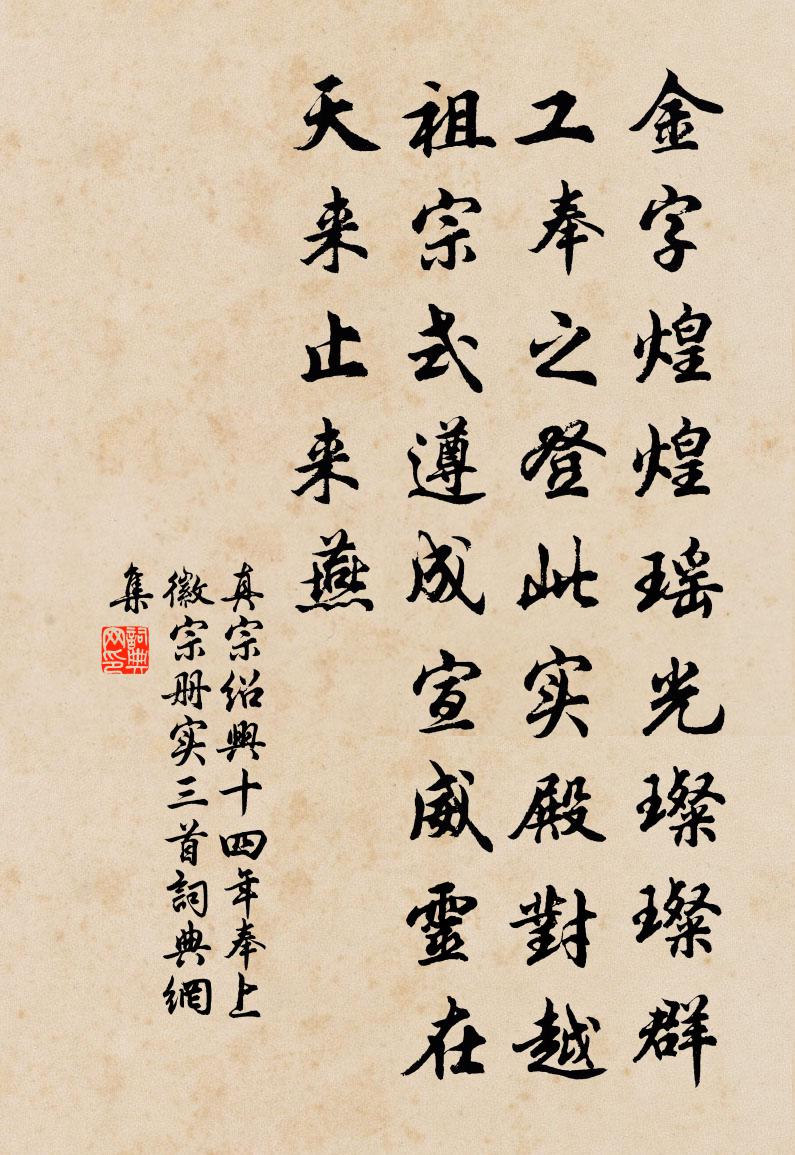 金字煌煌瑶光璨璨群
工奉之登此实殿對越
祖宗式遵成宣威靈在
天来止来燕
真宗绍興十四年奉上
徽宗册实三首詞典網
集
詞典网印